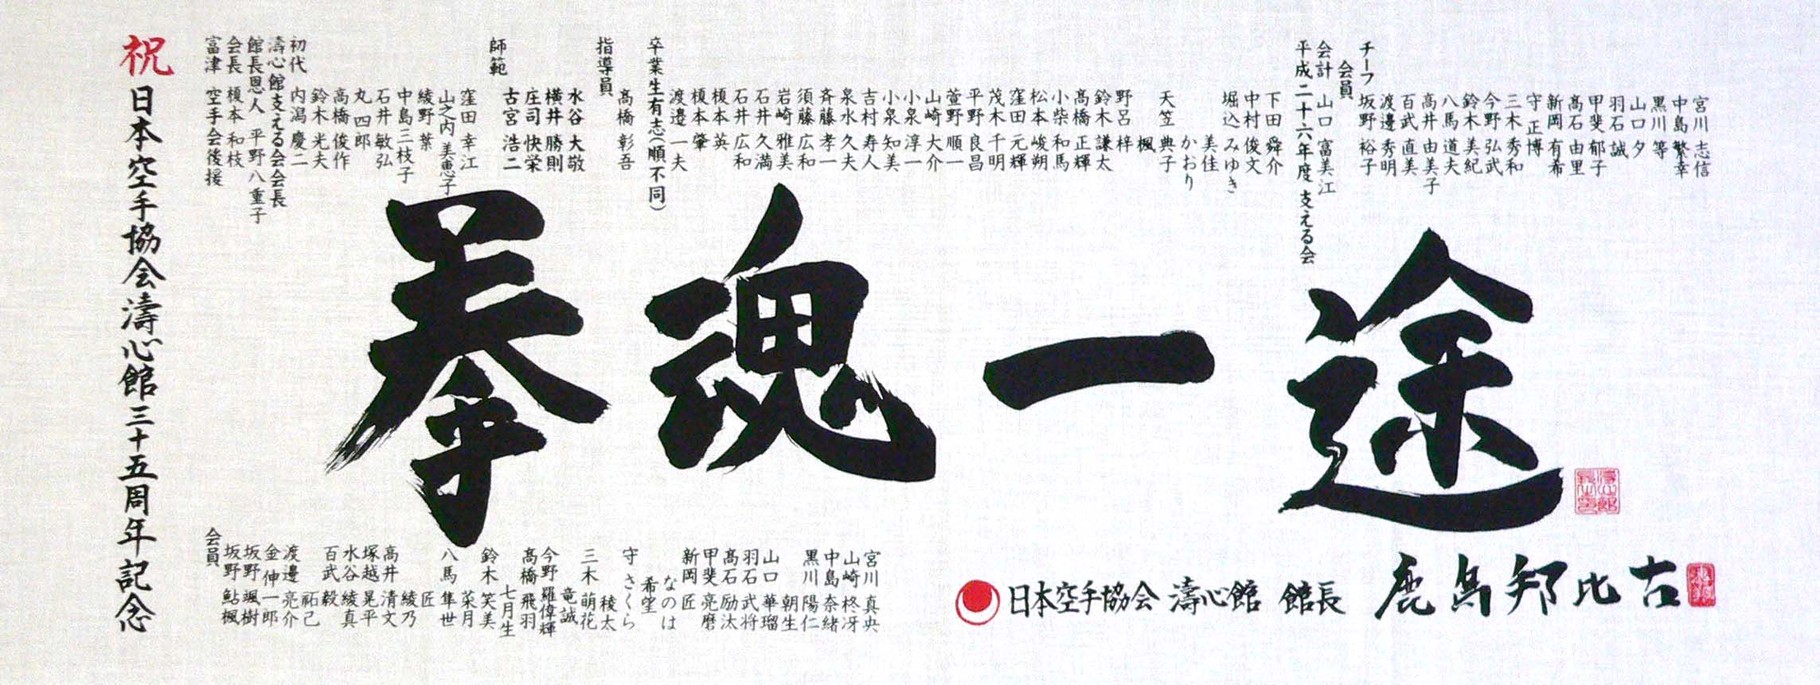 祝 日本空手協会濤心館三十五周年記念
富津 空手会後援
会長 榎本 和枝
館長恩人 平野 八重子
濤心館支える会会長
初代 内潟 慶二
鈴木 光夫
高橋 俊作
丸 四郎
石井 敏弘
中島 三枝子
綾野 葉
山之内 美恵子
窪田 幸江
師範
古宮 浩二
庄司 快栄
横井 勝則
水谷 大敬
指導員
高橋 彰吾
卒業生有志(順不同)
渡邉 一夫
榎本 肇
榎本 英
石井 広和
石井 久満
岩崎 雅美
須藤 広和
斉藤 孝一
泉水 久夫
吉村 寿人
小泉 知美
小泉 淳一
山崎 大介
萱野 順一
平野 良昌
茂木 千明
窪田 元輝
松本 峻朔
小柴 和馬
高橋 正輝
鈴木 謙太
野呂 梓
楓
天笠 典子
かおり
美佳
堀込 みゆき
中村 俊文
下田 舜介
平成二十六年度 支える会
会計 山口 富美江
会員
チーフ 坂野 裕子
渡邊 秀明
百武 直美
高井 由美子
八馬 道夫
鈴木 美紀
今野 弘武
三木 秀和
守 正博
新岡 有希
高石 由里
甲斐 郁子
羽石 誠
山口 夕
黒川 等
中島 繁幸
宮川 志信
拳魂一途
会員
坂野 鮎楓
坂野 颯樹
金 伸一郎
渡邊 亮介
祐己
百武 毅
水谷 綾真
塚越 晃平
高井 清文
綾乃
匠
八馬 隼世
菜月
鈴木 笑美
七月生
高橋 飛羽
今野 羅偉輝
竜誠
三木 萌花
稜太
守 さくら
希望
なのは
新岡 匠
甲斐 亮磨
高石 励汰
羽石 武将
山口 華瑠
朝生
黒川 陽仁
中島 奈緒
山崎 柊冴
宮川 真央
日本空手協会 濤心館 館長 鹿島邦比古